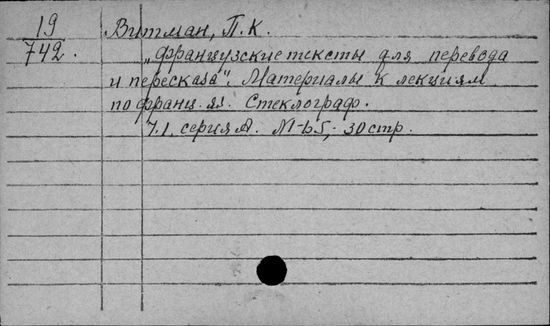 19
742.
Витман, П. К.
„Французские тексты для перевода
и пересказа". Материалы к лекциям
по франц. яз. Стеклограф.
Ч.1. серия А. 30 стр.